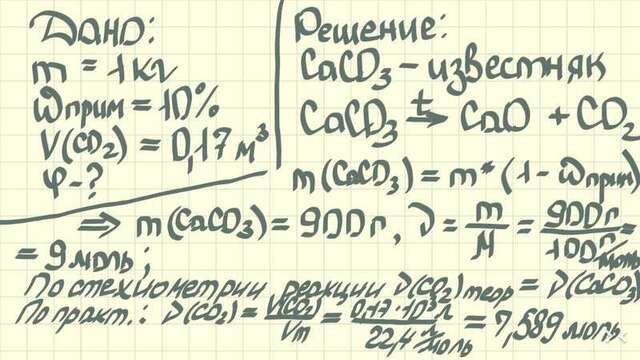 Дано:
m = 1 кг
ωприм = 10%
V(CO₂) = 0,17 м³
φ - ?
Решение:
CaCO₃ - известняк
CaCO₃ →ᵗ CaO + CO₂
m(CaCO₃) = m * (1 - ωприм)
⇒ m(CaCO₃) = 900 г, ν = m/M = 900 г/100 г/моль =
= 9 моль;
По стехиометрии реакции ν(CO₂)теор = ν(CaCO₃)
По практ.: ν(CO₂) = V(CO₂)/Vm = 0,17 · 10³ л/22,4 л/моль = 7,589 моль